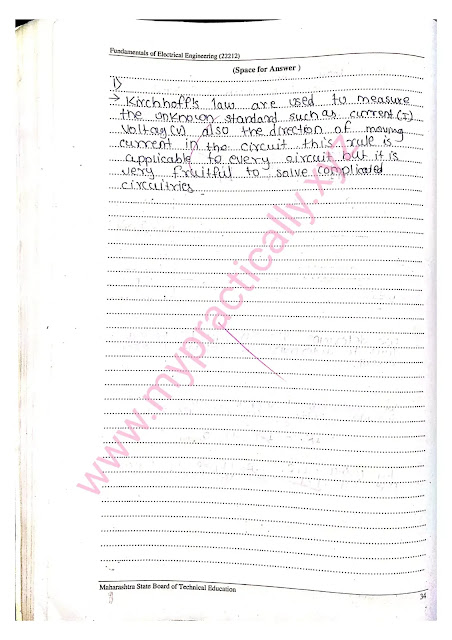 Fundamentals of Electrical Engineering (22212)
(Space for Answer )
1)
→ Kirchhoff's law are used to measure
the unknown standard such as current (I)
voltag (V) also the direction of moving
current in the circuit this rule is
applicable to every circuit but it is
very fruitful to solve complicated
circuitries.
www.mypractically.xyz
Maharashtra State Board of Technical Education
34